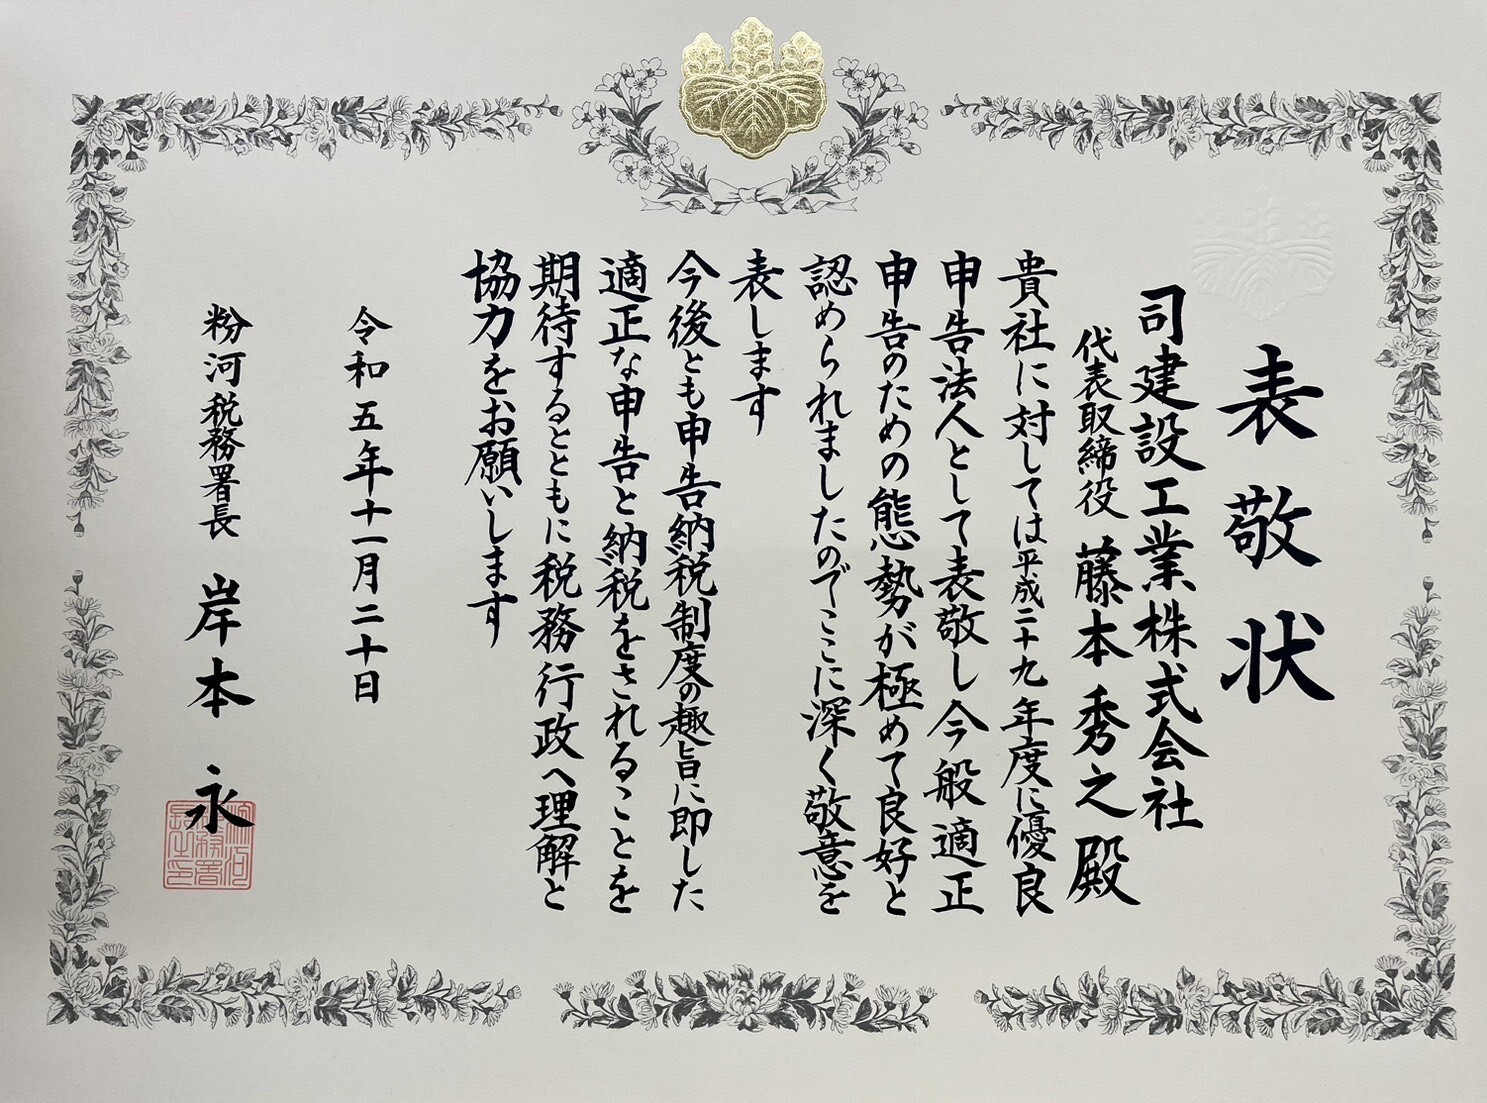 表敬状
司建設工業株式会社
代表取締役 藤本秀之殿
貴社に対しては平成二十九年度に優良
申告法人として表敬し今般適正
申告のための態勢が極めて良好と
認められましたのでここに深く敬意を
表します
今後とも申告納税制度の趣旨に即した
適正な申告と納税をされることを
期待するとともに税務行政へ理解と
協力をお願いします
令和五年十一月二十日
粉河税務署長 岸本 永
粉河税務署長之印